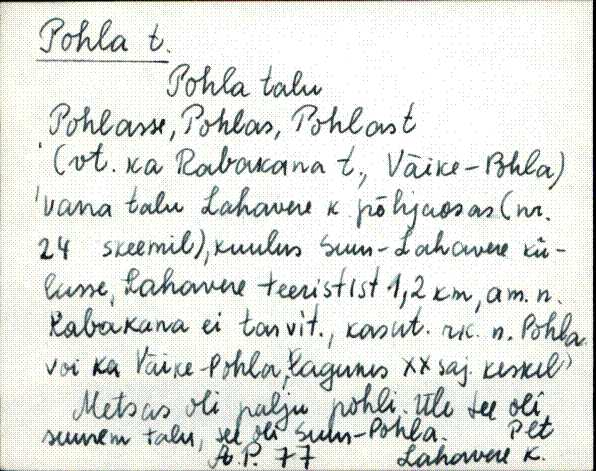 Pohla t.
Pohla talu
Pohlasse, Pohlas, Pohlast
(vt. ka Rabakana t., Väike-Pohla)
vana talu Lahavere k põhjaosas (nr.
24 skeemil), kuulus Suur-Lahavere kü-
lasse, Lahavere teeristist 1,2 km, am. n.
Rabakana ei tarvit., kasut. rk. n. Pohla
voi ka Väike-Pohla, lagunes XX saj. keskel)
Metsas oli palju pohli. Üle tee oli
suurem talu, see oli Suur-Pohla. Plt
A.P. 77 Lahavere k.